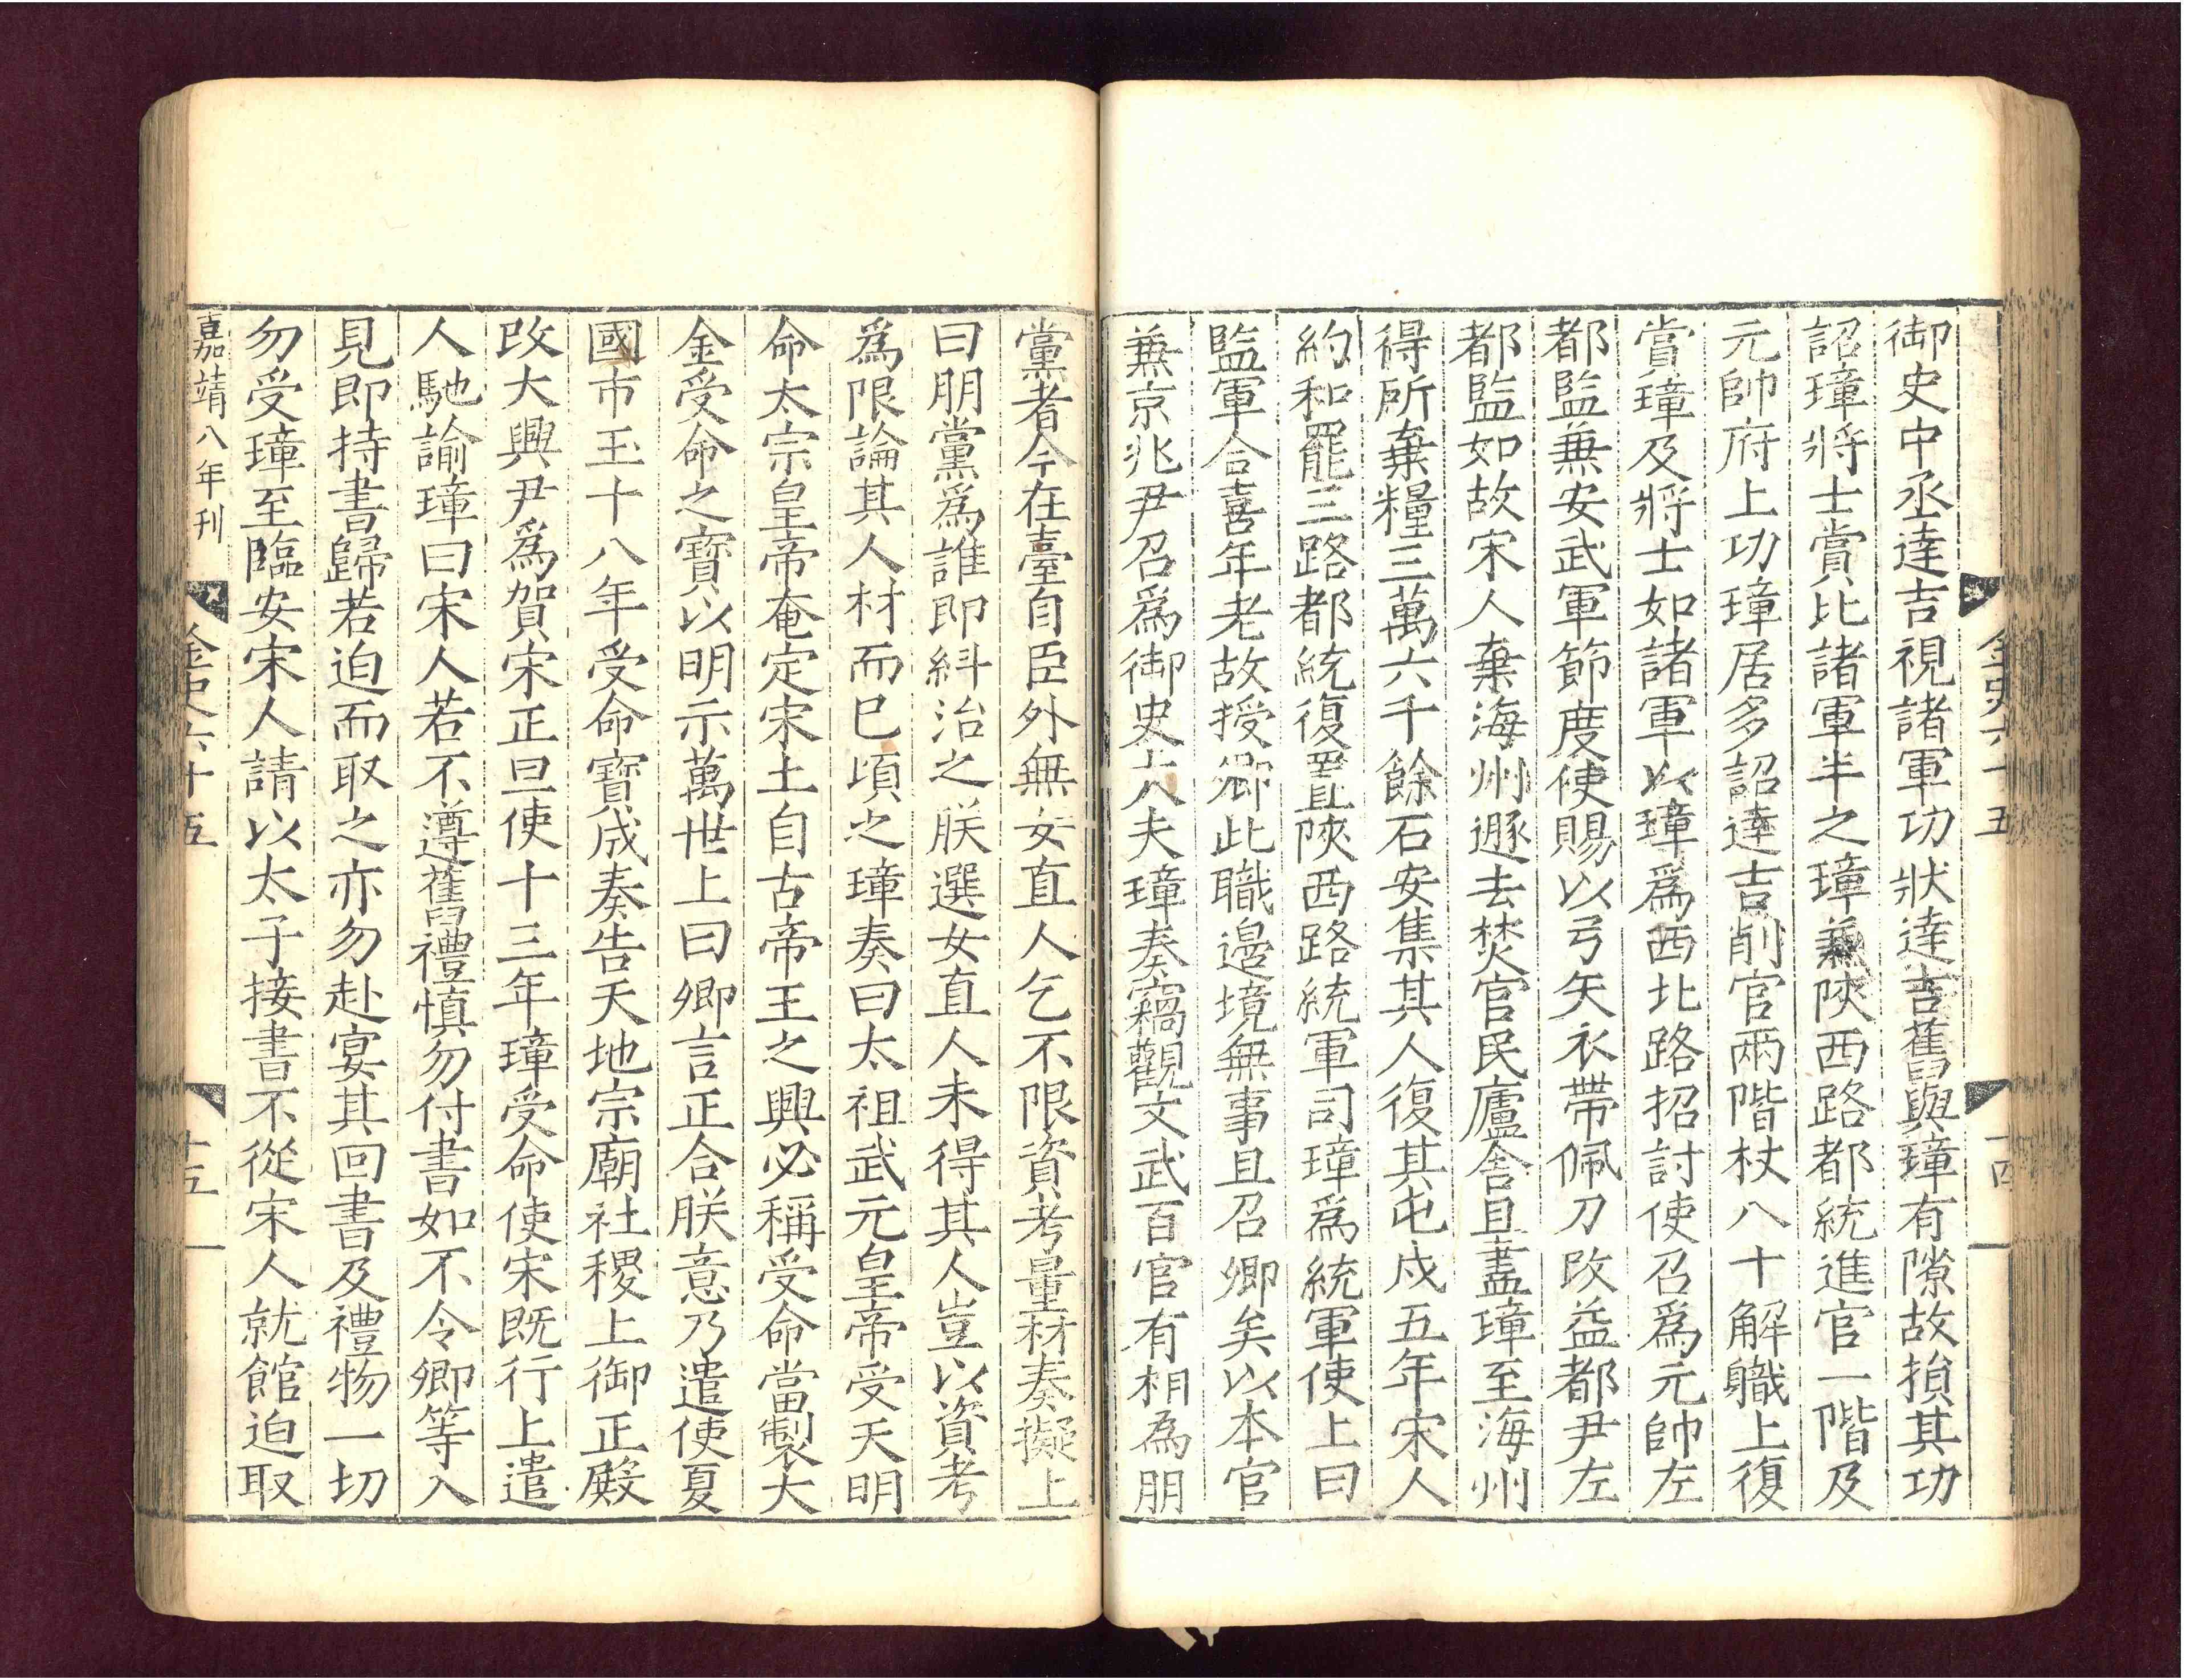 金史六十五
十四
御史中丞達吉視諸軍功狀達吉舊與璋有隙故損其功
詔璋將士賞比諸軍半之璋兼陝西路都統進官一階及
元帥府上功璋居多詔達吉削官兩階杖八十解職上復
賞璋及將士如諸軍以璋爲西北路招討使召爲元帥左
都監兼安武軍節度使賜以弓矢衣帶佩刀改益都尹左
都監如故宋人棄海州遯去焚官民廬舍且盡璋至海州
得所棄糧三萬六千餘石安集其人復其屯戍五年宋人
約和罷三路都統復置陝西路統軍司璋爲統軍使上曰
監軍合喜年老故授卿此職邊境無事且召卿矣以本官
兼京兆尹召爲御史大夫璋奏竊觀文武百官有相為朋
黨者今在臺自臣外無女直人乞不限資考量材奏擬上
曰朋黨爲誰即糾治之朕選女直人未得其人豈以資考
爲限論其人材而已頃之璋奏曰太祖武元皇帝受天明
命太宗皇帝奄定宋土自古帝王之興必稱受命當製大
金受命之寶以明示萬世上曰卿言正合朕意乃遣使夏
國市玉十八年受命寶成奏告天地宗廟社稷上御正殿
改大興尹爲賀宋正旦使十三年璋受命使宋既行上遣
人馳諭璋曰宋人若不遵舊禮慎勿付書如不令卿等入
見即持書歸若迫而取之亦勿赴宴其回書及禮物一切
勿受璋至臨安宋人請以太子接書不從宋人就館迫取
嘉靖八年刊
金史六十五
十五